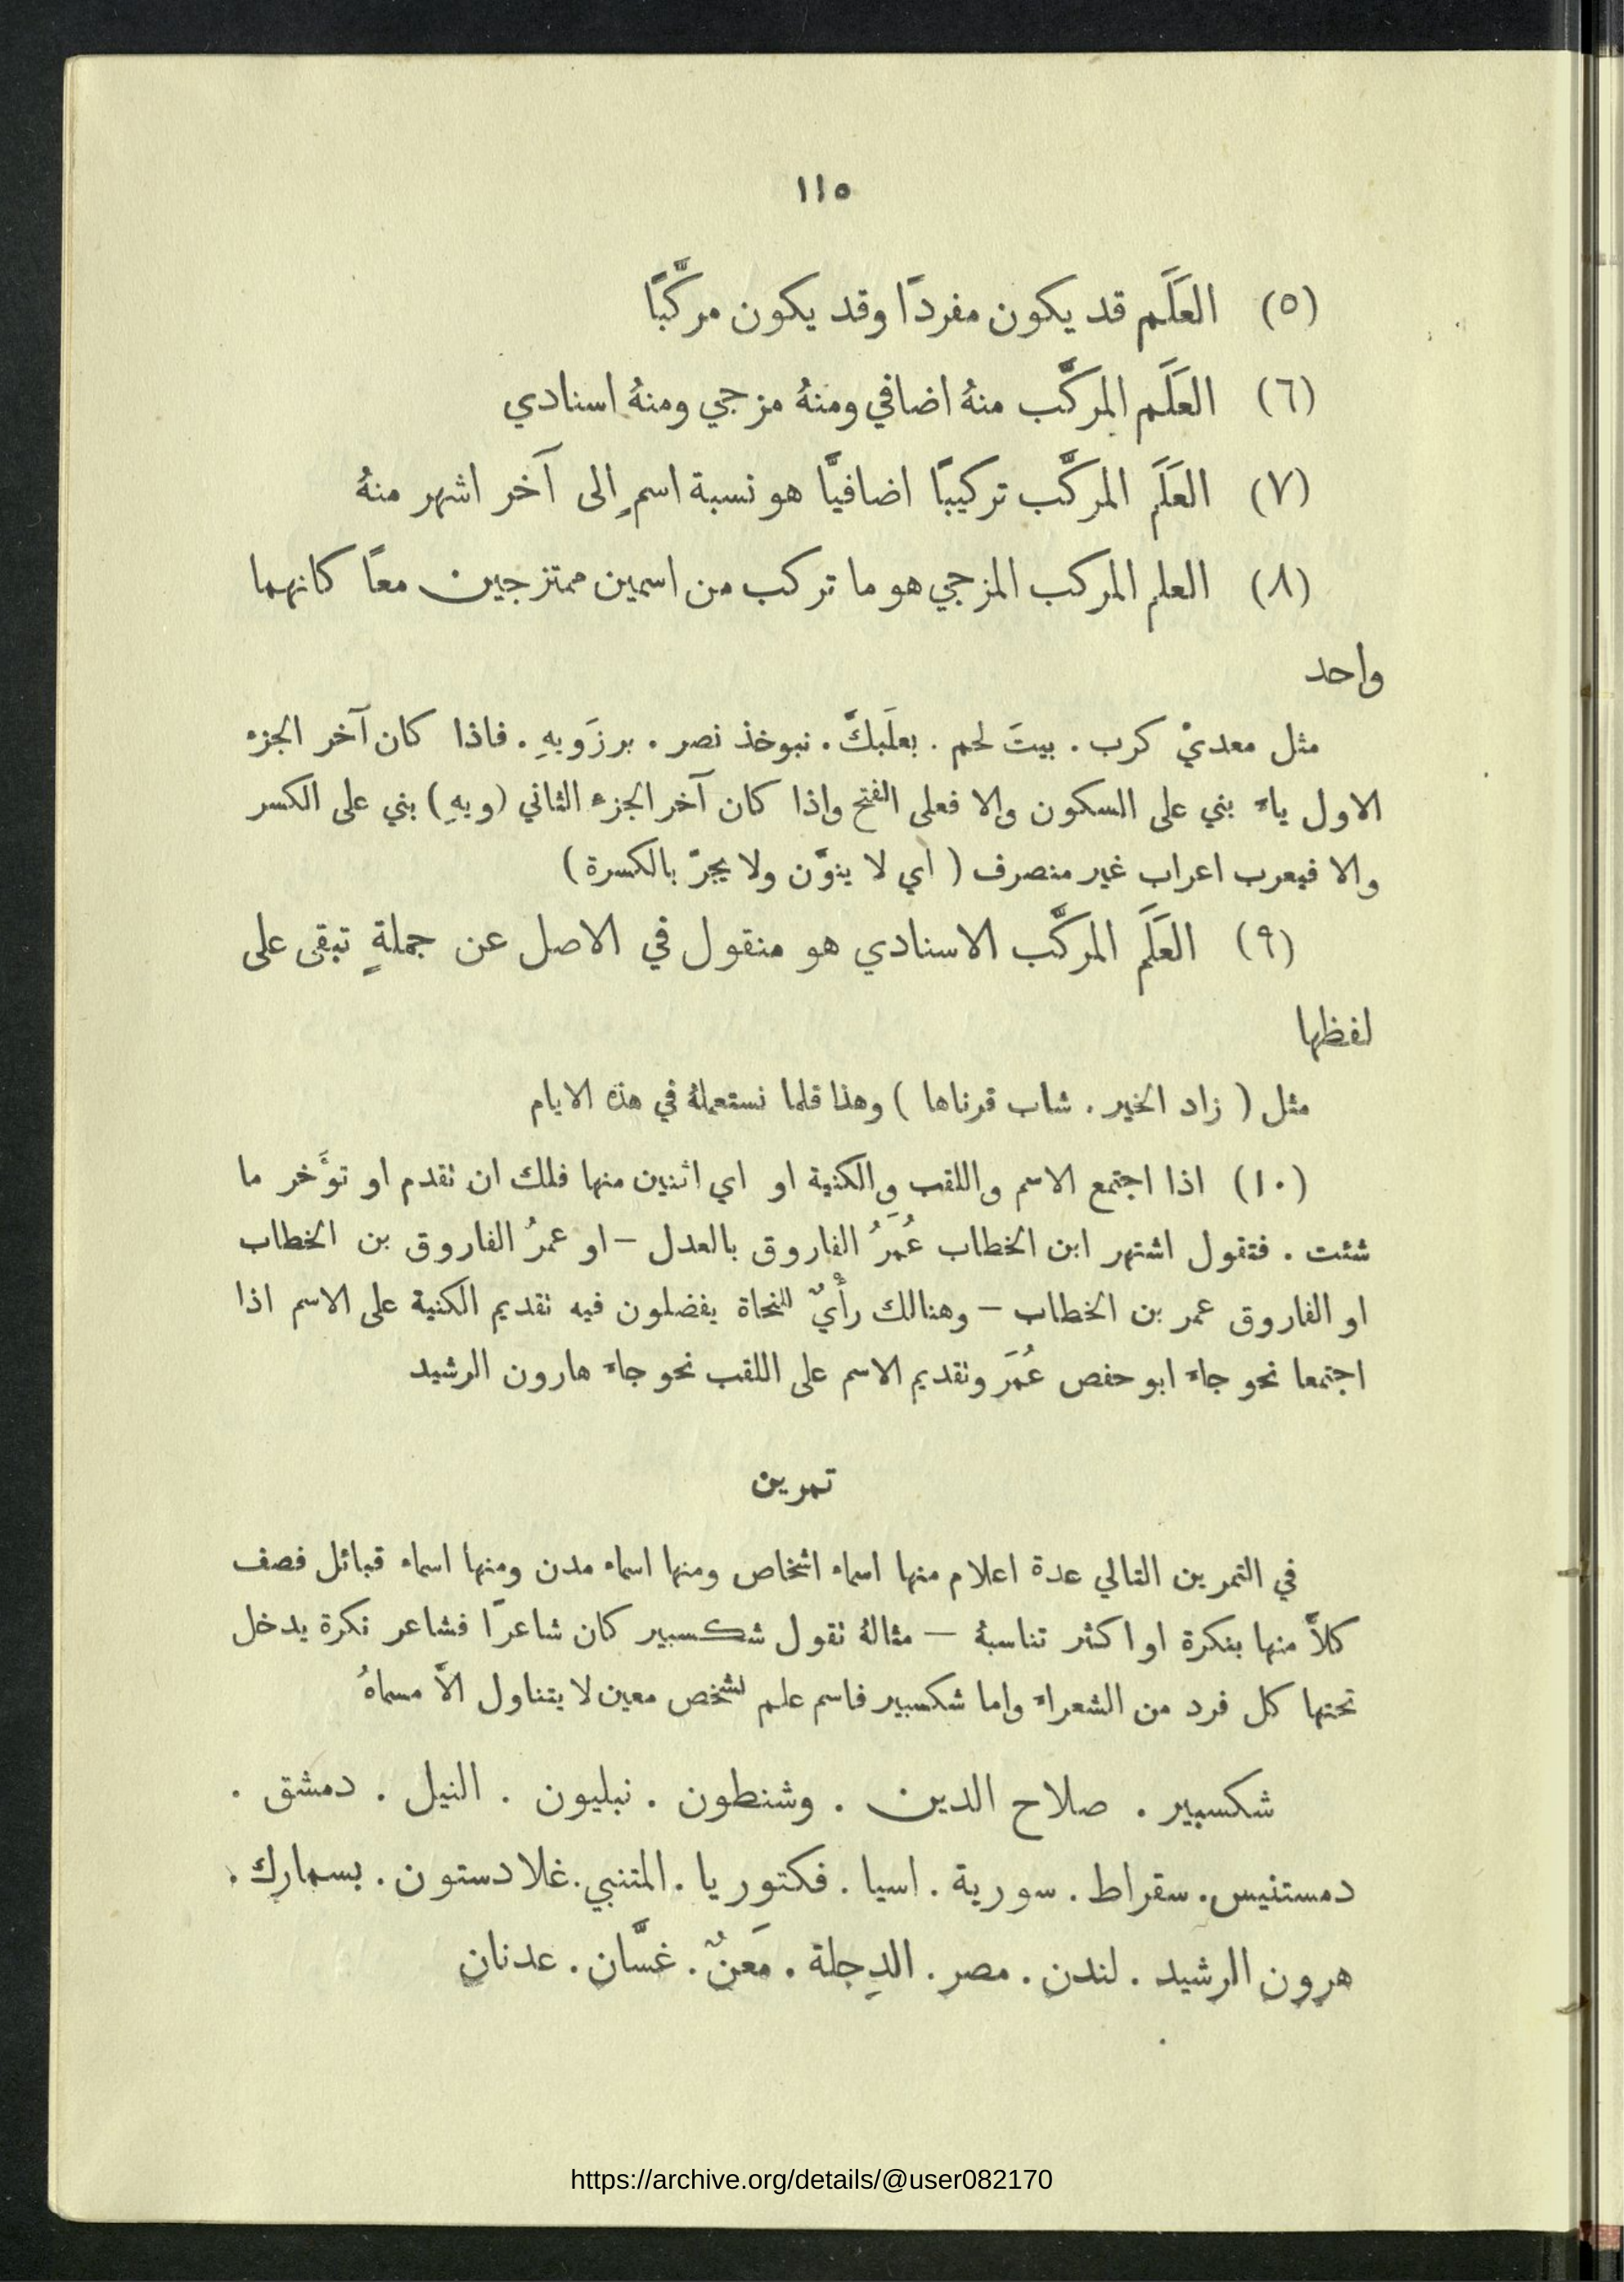 ١١٥
(٥) العَلَم قد يكون مفردًا وقد يكون مركَّبًا
(٦) العَلَم المركَّب منهُ اضافي ومنهُ مزجي ومنهُ اسنادي
(٧) العَلَم المركَّب تركيبًا اضافيًّا هو نسبة اسمٍ الى آخر اشهر منهُ
(٨) العلم المركب المزجي هو ما تركب من اسمين ممتزجين معًا كانهما
واحد
مثل معديْ كرب . بيتَ لحم . بعلَبكَّ . نبوخذ نصر . برزَويهِ . فاذا كان آخر الجزء
الاول ياءً بني على السكون والا فعلى الفتح واذا كان آخر الجزء الثاني (ويهِ) بني على الكسر
والا فيعرب اعراب غير منصرف ( اي لا ينوَّن ولا يجرّ بالكسرة )
(٩) العَلَم المركَّب الاسنادي هو منقول في الاصل عن جملةٍ تبقى على
لفظها
مثل ( زاد الخير . شاب قرناها ) وهذا قلما نستعملهُ في هذه الايام
(١٠) اذا اجتمع الاسم واللقب والكنية او اي اثنين منها فلك ان تقدم او تؤَخر ما
شئت . فتقول اشتهر ابن الخطاب عُمَرُ الفاروق بالعدل – او عمرُ الفاروق بن الخطاب
او الفاروق عمر بن الخطاب – وهنالك رأْيٌ للنحاة يفضلون فيه تقديم الكنية على الاسم اذا
اجتمعا نحو جاءَ ابو حفص عُمَر وتقديم الاسم على اللقب نحو جاءَ هارون الرشيد
تمرين
في التمرين التالي عدة اعلام منها اسماء اشخاص ومنها اسماء مدن ومنها اسماء قبائل فصف
كلاًّ منها بنكرة او اكثر تناسبهُ – مثالهُ تقول شكسبير كان شاعرًا فشاعر نكرة يدخل
تحتها كل فرد من الشعراءِ واما شكسبير فاسم علم لشخص معين لا يتناول الاَّ مسماهُ
شكسبير . صلاح الدين . وشنطون . نبليون . النيل . دمشق .
دمستنيس . سقراط . سورية . اسيا . فكتوريا . المتنبي . غلادستون . بسمارك .
هرون الرشيد . لندن . مصر . الدِجلة . مَعَنٌ . غسَّان . عدنان
https://archive.org/details/@user082170